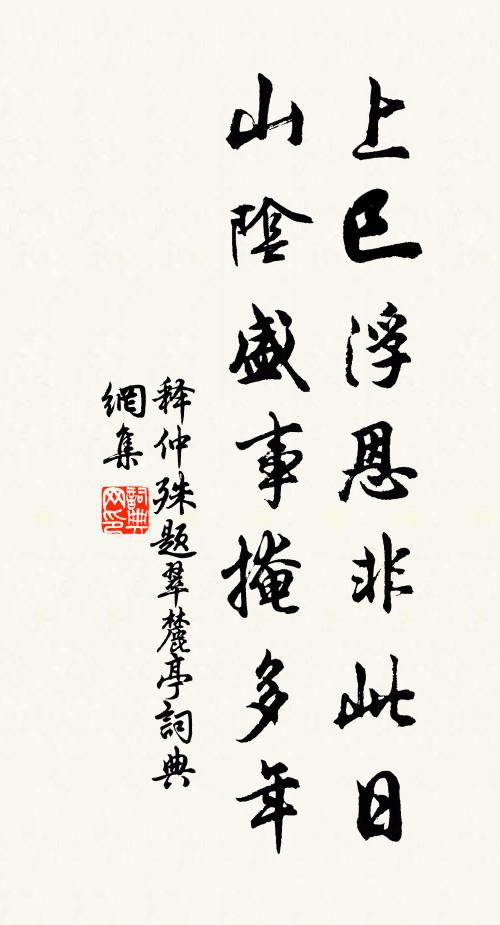 上巳浮恩非此日
山陰盛事掩多年
释仲殊题翠麓亭詞典
網集
詞典网印